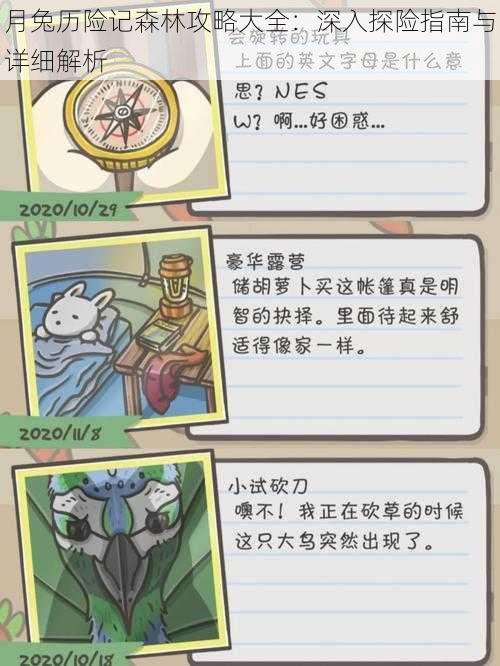 月兔历险记森林攻略大全：深入探险指南与
详细解析
会旋转的玩具
上面的英文字母是什么意
思？NES
W？啊...好困惑...
2020/10/29
豪华露营
储胡萝卜买这帐篷真是明
智的抉择。里面待起来舒
适得像家一样。
2020/11/8
小试砍刀
噢不！我正在砍草的时候
这只大鸟突然出现了。
2020/10/18